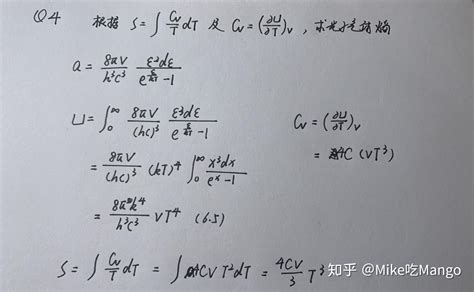 Q4 根据 S = ∫ Cv/T dT 及 Cv = (∂U/∂T)v , 求光子气的熵
a = 8πV/h³c³ ε²dε/(e^(ε/kT) - 1)
U = ∫₀^∞ 8πV/(hc)³ ε³dε/(e^(ε/kT) - 1) Cv = (∂U/∂T)v
= 8πV/(hc)³ (kT)⁴ ∫₀^∞ x³dx/(eˣ - 1) = 4C (VT³)
= 8πk⁴/h³c³ VT⁴ (6.5)
S = ∫ Cv/T dT = ∫ 4CV T²dT = 4CV/3 T³
知乎 @Mike吃Mango